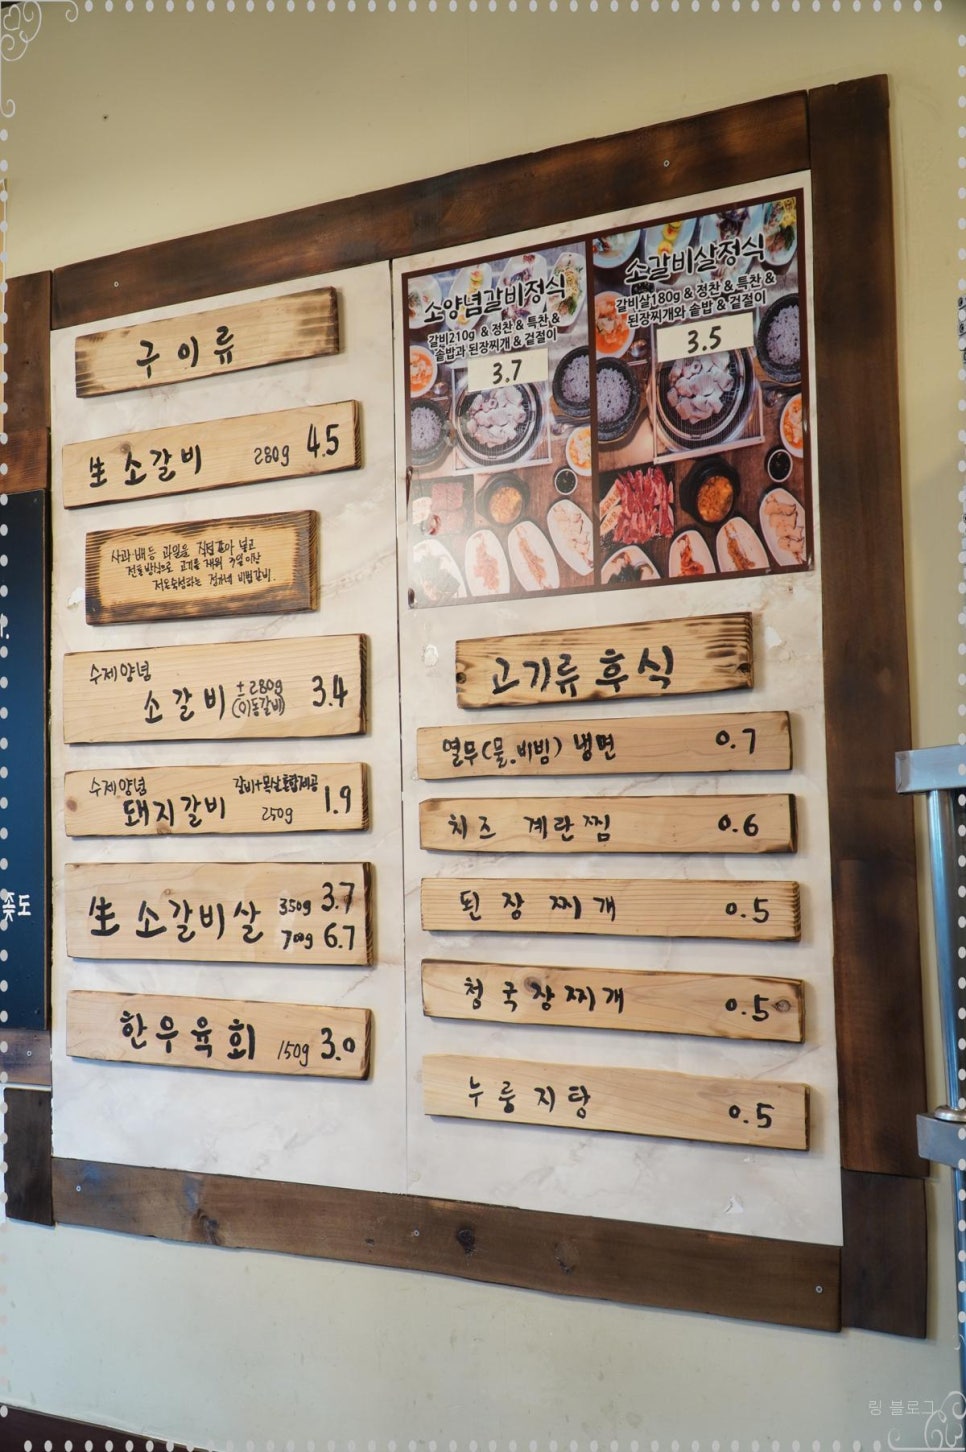 구이류
生 소갈비 280g 4.5
사과 배등 과일을 직접 갈아 넣고
전통방식으로 고기를 재워 7일이상
저온숙성하는 비법갈비.
수제양념
소갈비 ±280g (이동갈비) 3.4
수제양념 갈비+목살 혼합제공
돼지갈비 250g 1.9
生 소갈비살 350g 3.7
700g 6.7
한우육회 150g 3.0
소양념갈비정식
갈비210g & 정찬 & 특찬 &
솥밥과 된장찌개 & 겉절이
3.7
소갈비살정식
갈비살180g & 정찬 & 특찬 &
된장찌개와 솥밥 & 겉절이
3.5
고기류 후식
열무(물.비빔) 냉면 0.7
치즈 계란찜 0.6
된장찌개 0.5
청국장찌개 0.5
누룽지탕 0.5
링 블로그